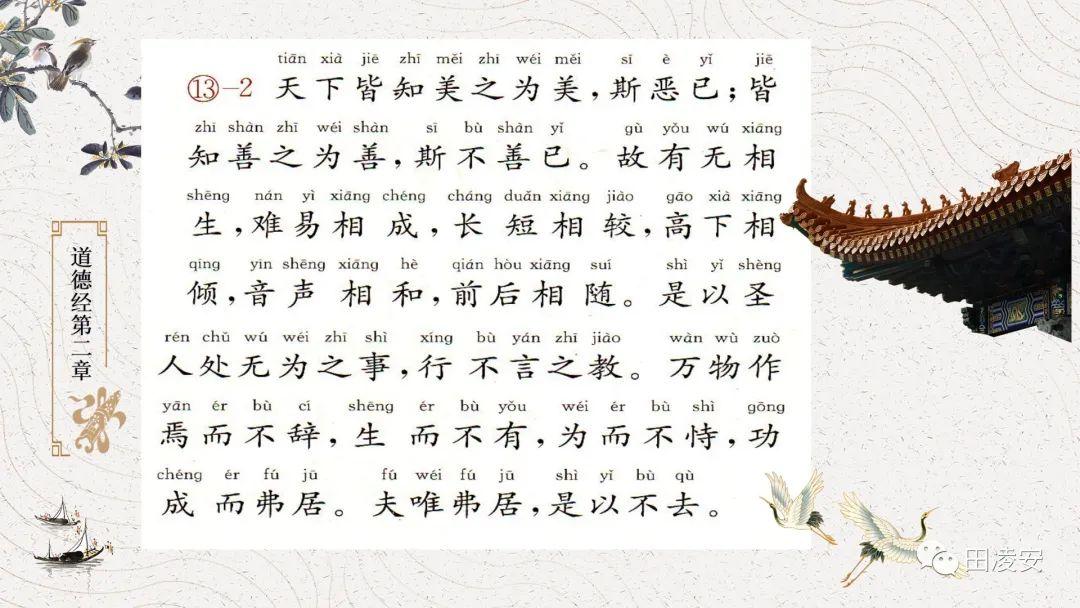 道德经第二章
tiān xià jiē zhī měi zhī wéi měi sī è yǐ jiē
⑬-2 天下皆知美之为美，斯恶已；皆
zhī shàn zhī wéi shàn sī bù shàn yǐ gù yǒu wú xiāng
知善之为善，斯不善已。故有无相
shēng nán yì xiāng chéng cháng duǎn xiāng jiào gāo xià xiāng
生，难易相成，长短相较，高下相
qīng yīn shēng xiāng hè qián hòu xiāng suí shì yǐ shèng
倾，音声相和，前后相随。是以圣
rén chǔ wú wéi zhī shì xíng bù yán zhī jiào wàn wù zuò
人处无为之事，行不言之教。万物作
yān ér bù cí shēng ér bù yǒu wéi ér bù shì gōng
焉而不辞，生而不有，为而不恃，功
chéng ér fú jū fú wéi fú jū shì yǐ bù qù
成而弗居。夫唯弗居，是以不去。
田凌安